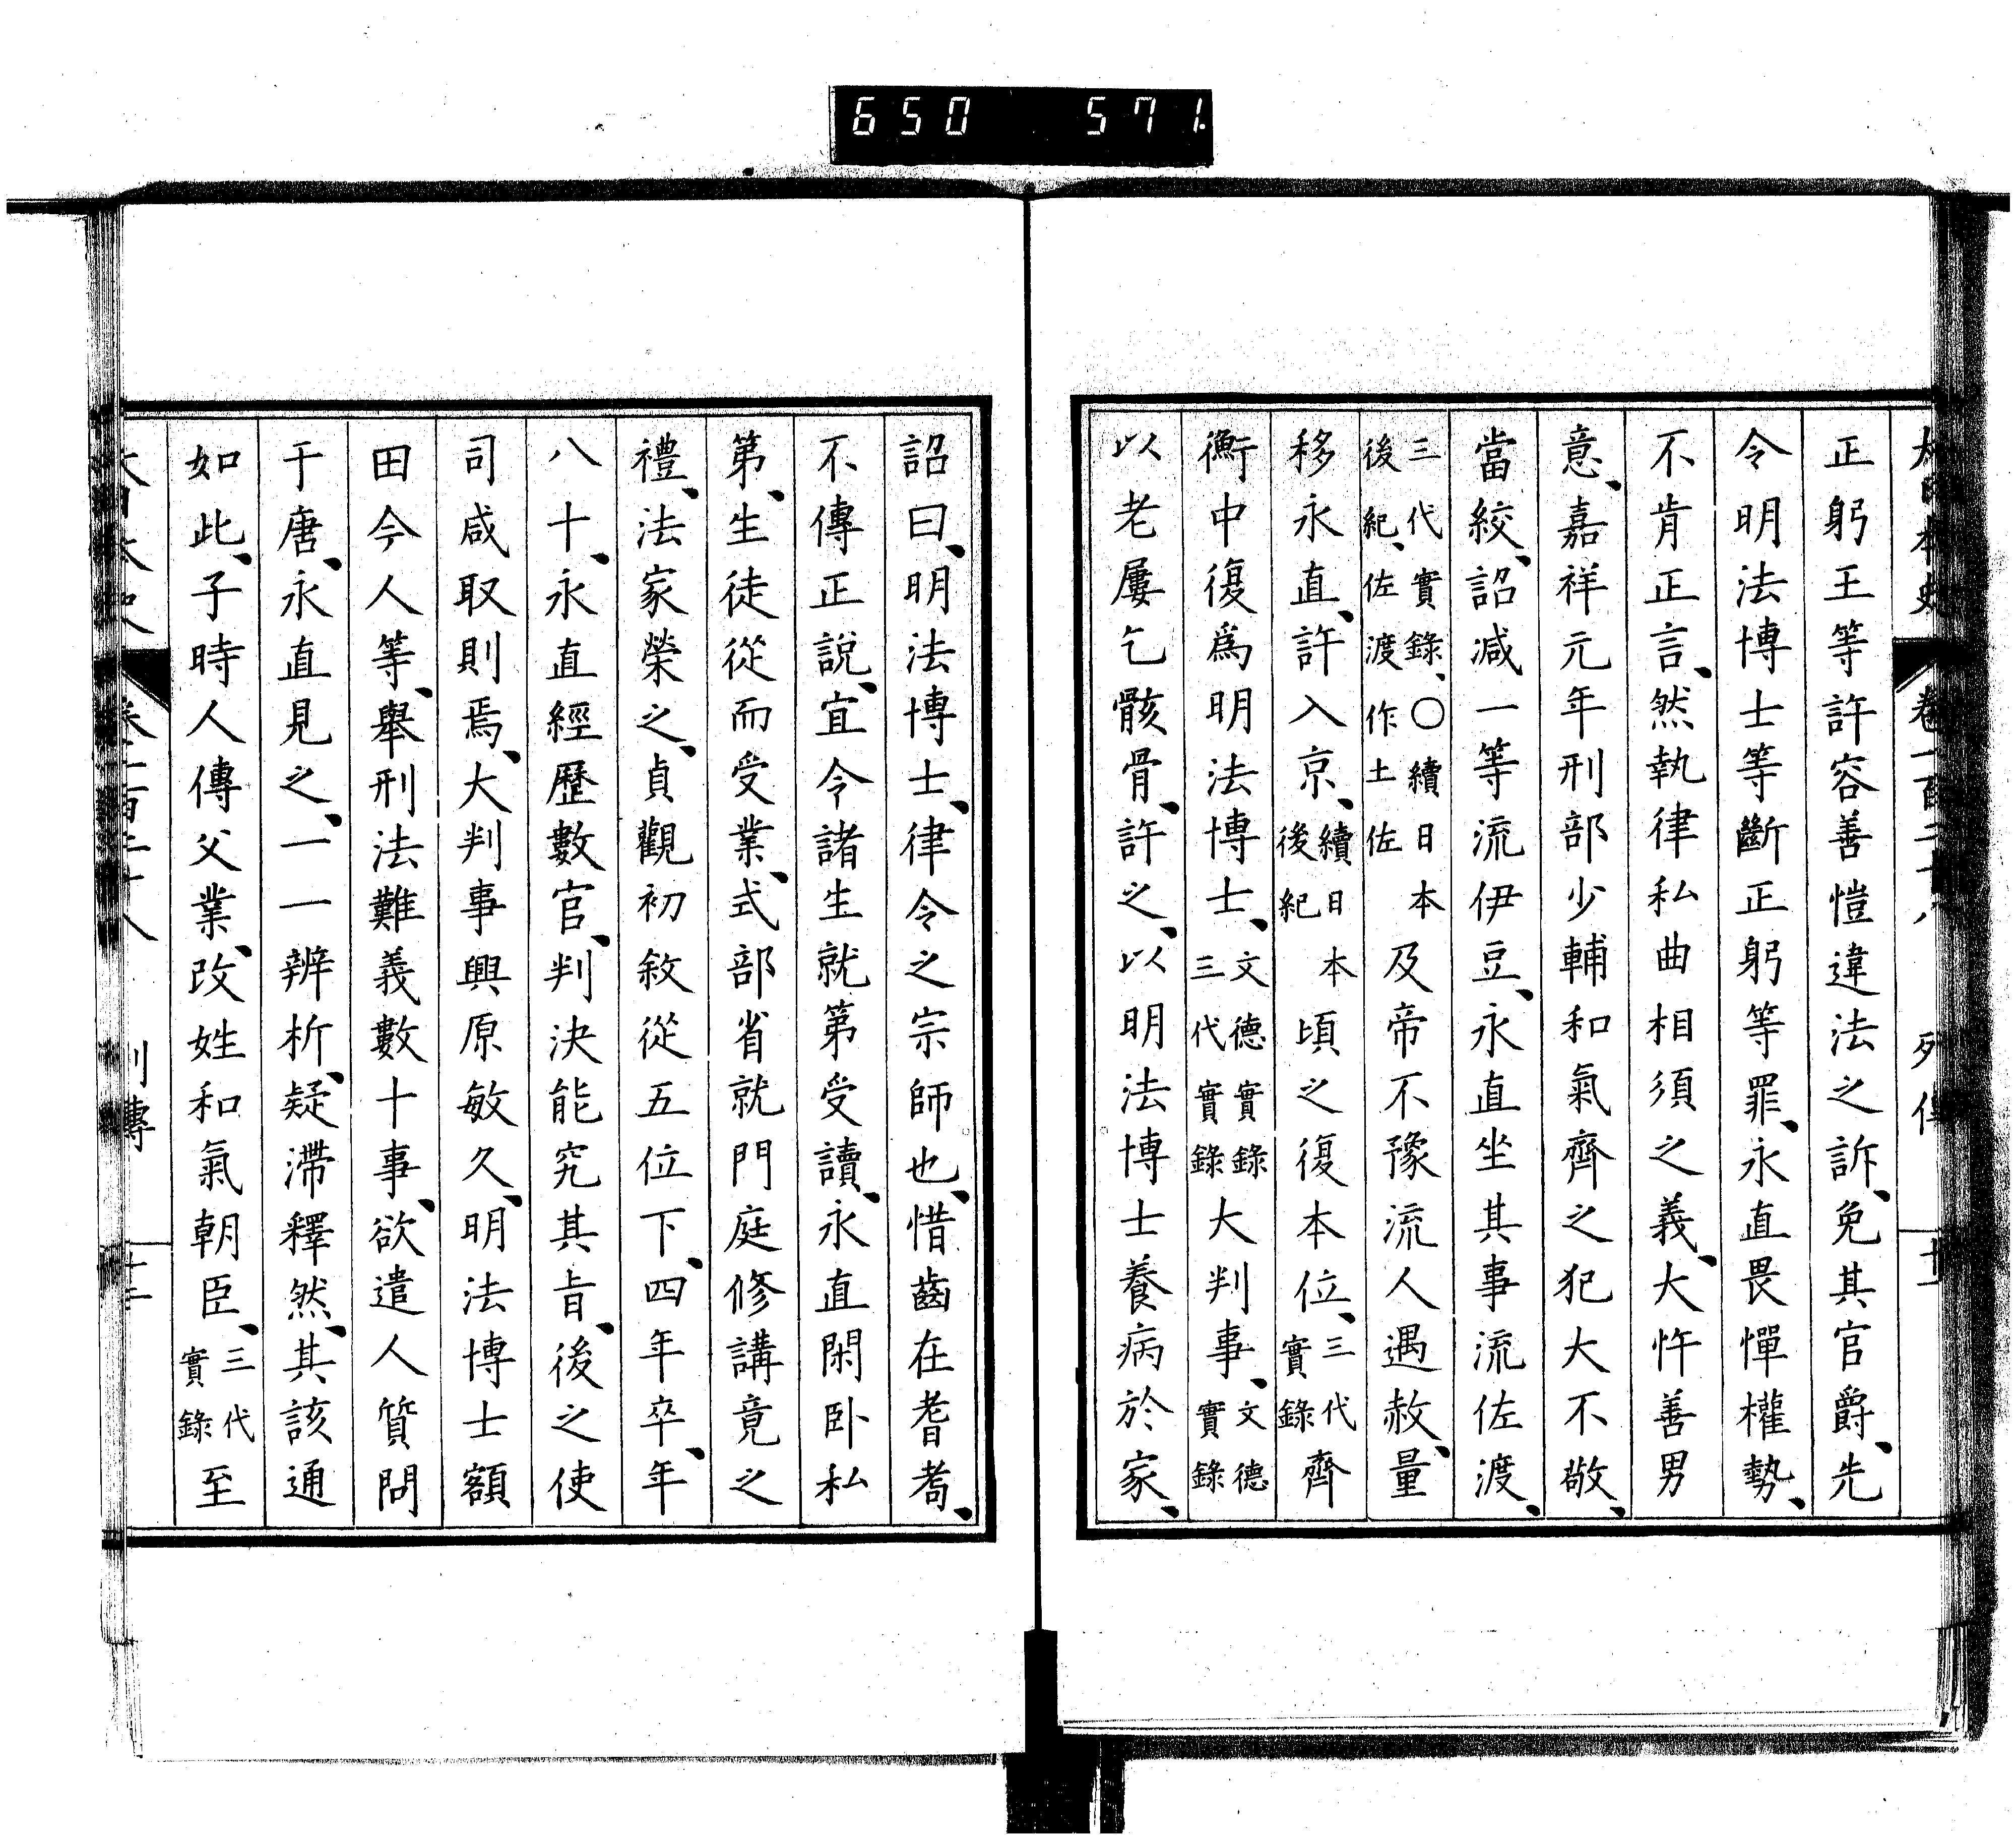 650 571.
大日本史 卷一百二十八 列傳 十一
正躬王等許容善愷違法之訴、免其官爵、先
令明法博士等斷正躬等罪、永直畏憚權勢、
不肯正言、然執律私曲相須之義、大忤善男
意、嘉祥元年刑部少輔和氣齊之犯大不敬、
當絞、詔減一等流伊豆、永直坐其事流佐渡、
三代實錄、○續日本後紀、佐渡作土佐 及帝不豫流人遇赦、量
移永直、許入京、續日本後紀 頃之復本位、三代實錄 齊
衡中復爲明法博士、文德實錄 三代實錄 大判事、文德實錄
以老屢乞骸骨、許之、以明法博士養病於家、
詔曰、明法博士、律令之宗師也、惜齒在耆耈、
不傳正說、宜令諸生就第受讀、永直閑臥私
第、生徒從而受業、式部省就門庭修講竟之
禮、法家榮之、貞觀初敘從五位下、四年卒、年
八十、永直經歷數官、判決能究其旨、後之使
司咸取則焉、大判事興原敏久、明法博士額
田今人等、舉刑法難義數十事、欲遣人質問
于唐、永直見之、一一辨析、疑滯釋然、其該通
如此、子時人傳父業、改姓和氣朝臣、三代實錄 至